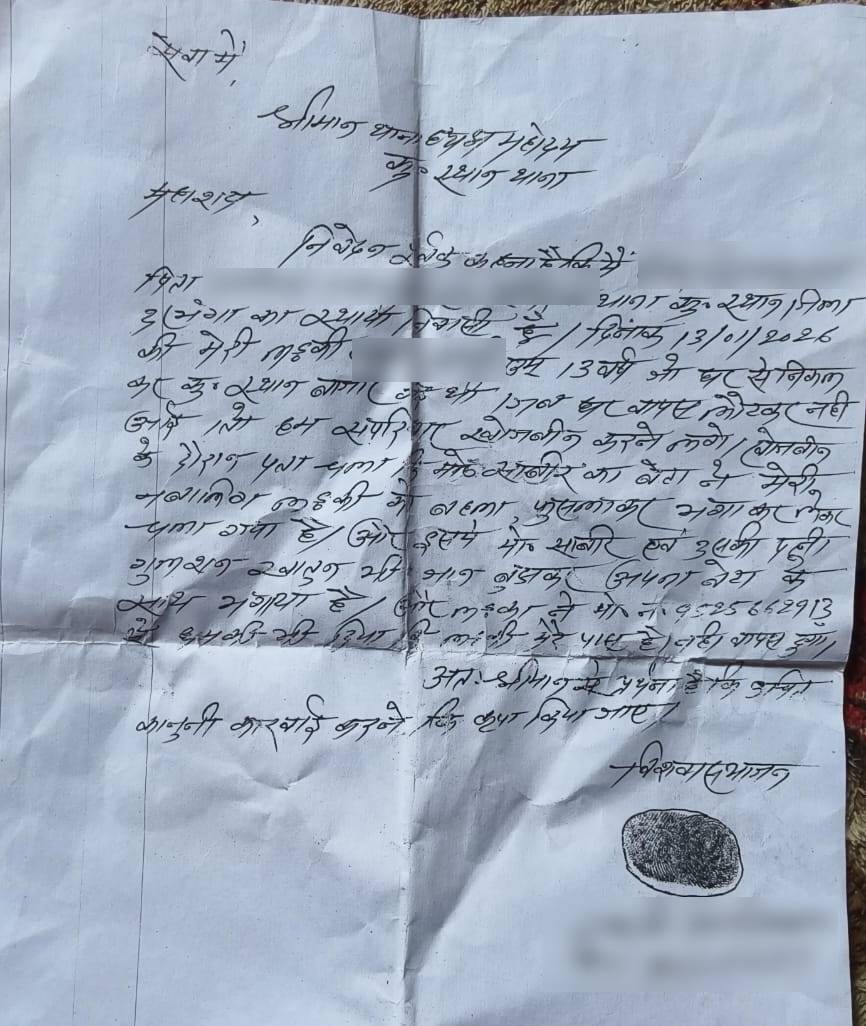 सेवा में,
श्रीमान थानाध्यक्ष महोदय
कु० स्थान थाना
महाशय,
निवेदन पूर्वक कहना है कि मैं
पिता थाना कु० स्थान जिला
दरभंगा का स्थायी निवासी हूँ। दिनांक 13/01/2026
को मेरी लड़की उम्र 13 वर्ष जो घर से निकल
कर कु० स्थान बाजार गई थी। जब घर वापस लौटकर नही
आई तो हम सपरिवार खोजबीन करने लगे। खोजबीन
के दौरान पता चला कि मो० साबीर का बेटा ने मेरी
नबालिग लड़की को बहला फुसलाकर भगा कर लेकर
चला गया है। और इसमे मो० साबीर एवं उसकी पत्नी
गुलशन खातुन भी अपना बेटा के
साथ भगाया है। और लड़का ने मो० न० 9525662913
से धमकी भी दिया कि लड़की मेरे पास है। नही वापस दुंगा।
अतः श्रीमान से प्रर्थना है कि उचित
कानुनी कारवाई करने कि कृपा किया जाए।
विश्वासभाजन